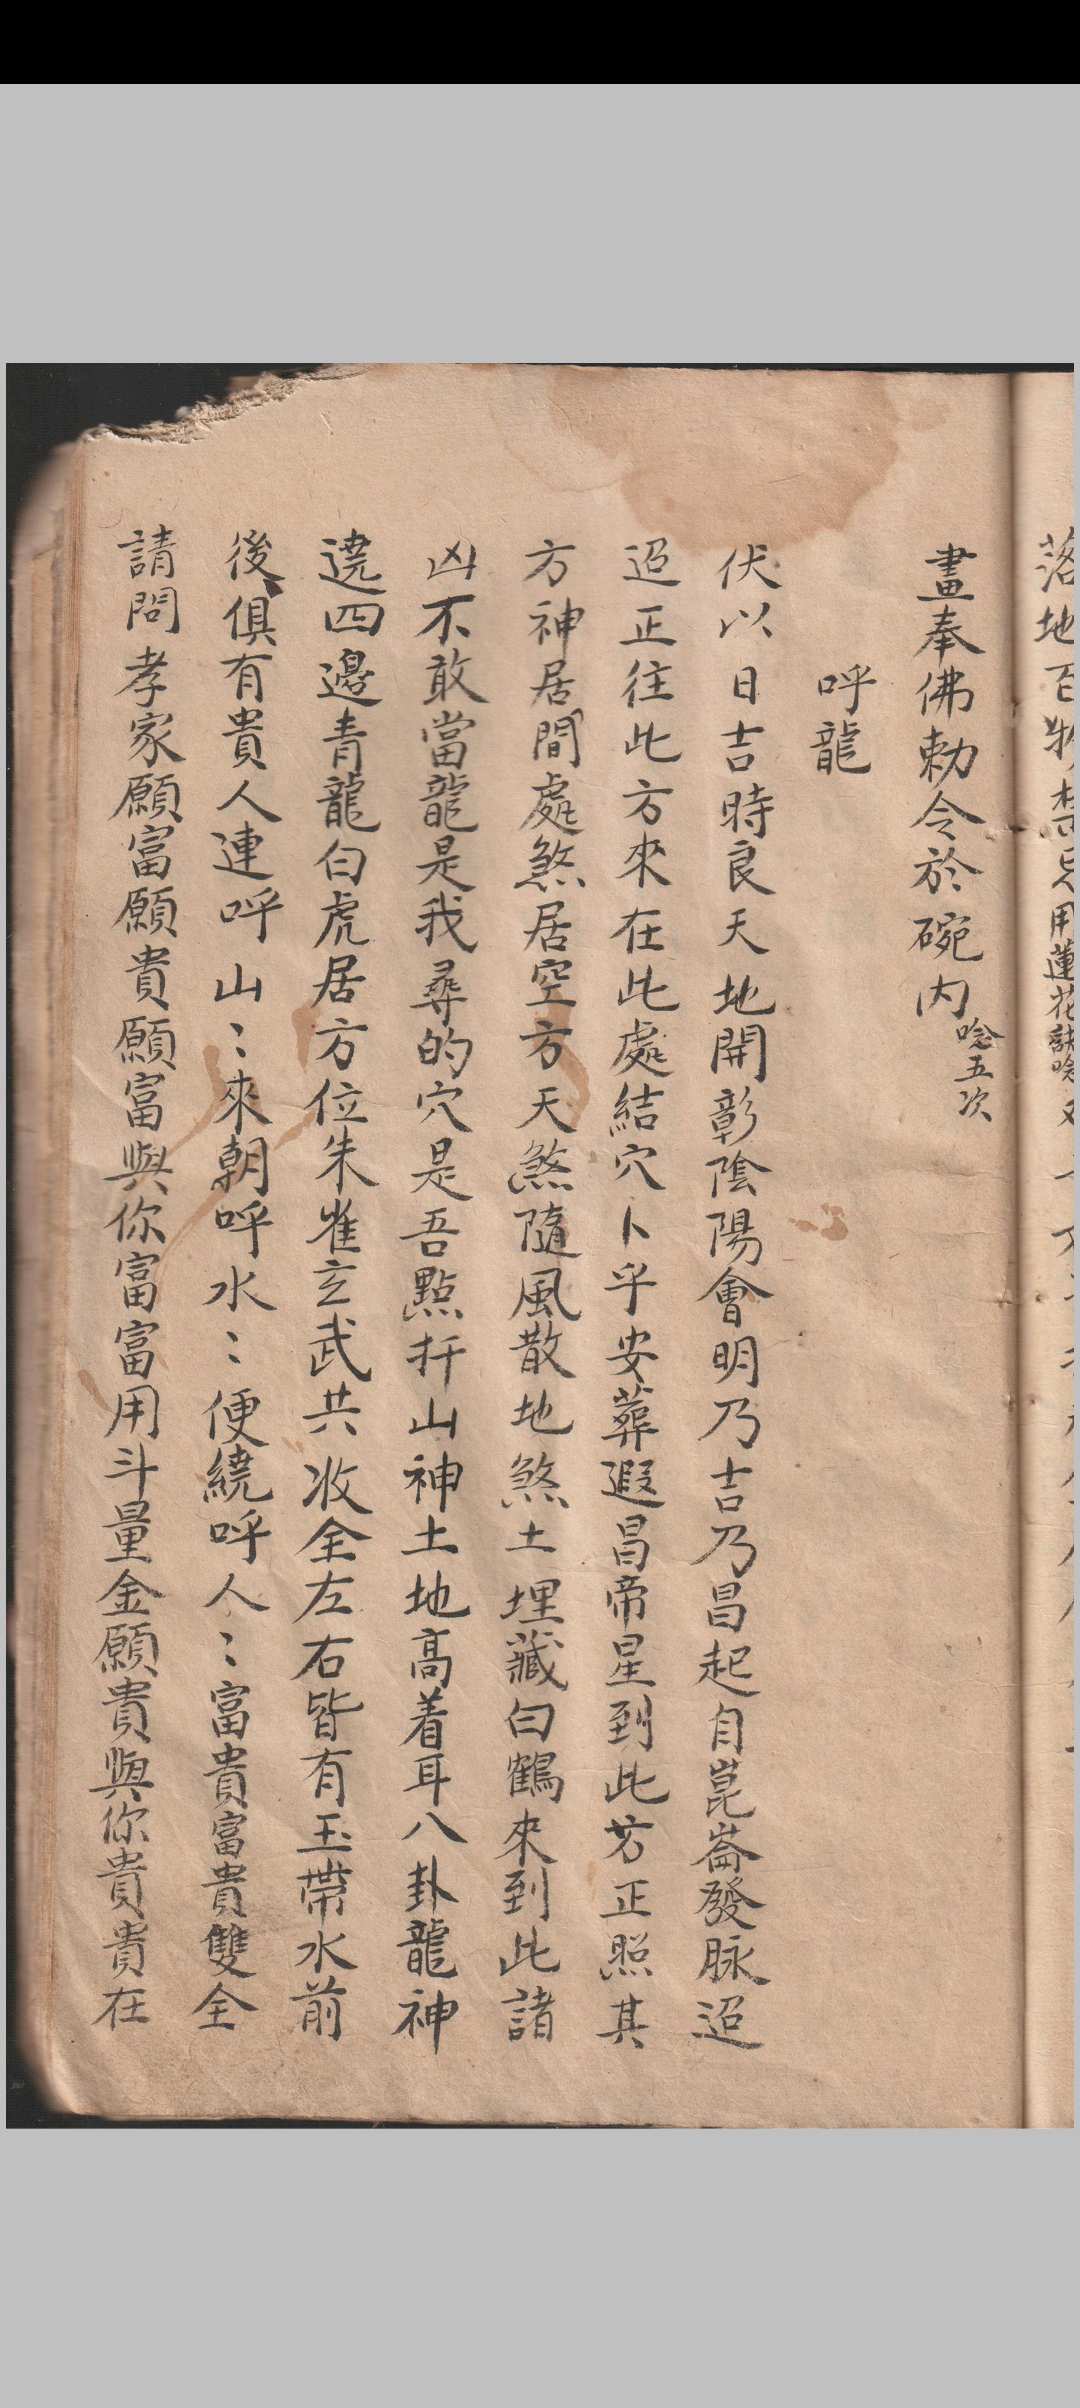 落地百物禁忌用蓮花訣唸
畫奉佛勅令於碗内唸五次
呼龍
伏以日吉時良天地開彰陰陽會明乃吉乃昌起自崑崙發脉迢
迢正往此方來在此處結穴卜乎安葬遐昌帝星到此方正照其
方神居間處煞居空方天煞隨風散地煞土埋藏白鶴來到此諸
凶不敢當龍是我尋的穴是吾點扦山神土地高着耳八卦龍神
遶四邊青龍白虎居方位朱雀玄武共收全左右皆有玉帶水前
後俱有貴人連呼山〻來朝呼水〻便繞呼人〻富貴富貴雙全
請問孝家願富願貴願富與你富富用斗量金願貴與你貴貴在